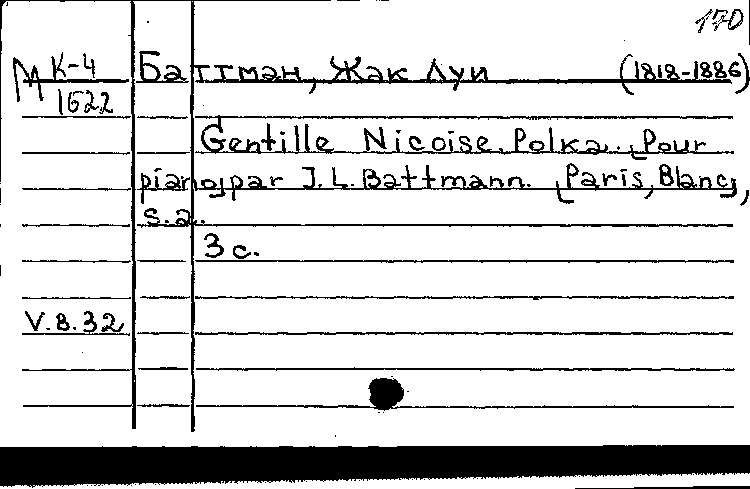 170
М К-4
1622
Баттман, Жак Луи (1818-1886)
Gentille Nicoise. Polka. [Pour
piano] par J. L. Battmann. [Paris, Blanc],
s.a.
3 с.
V.8.32